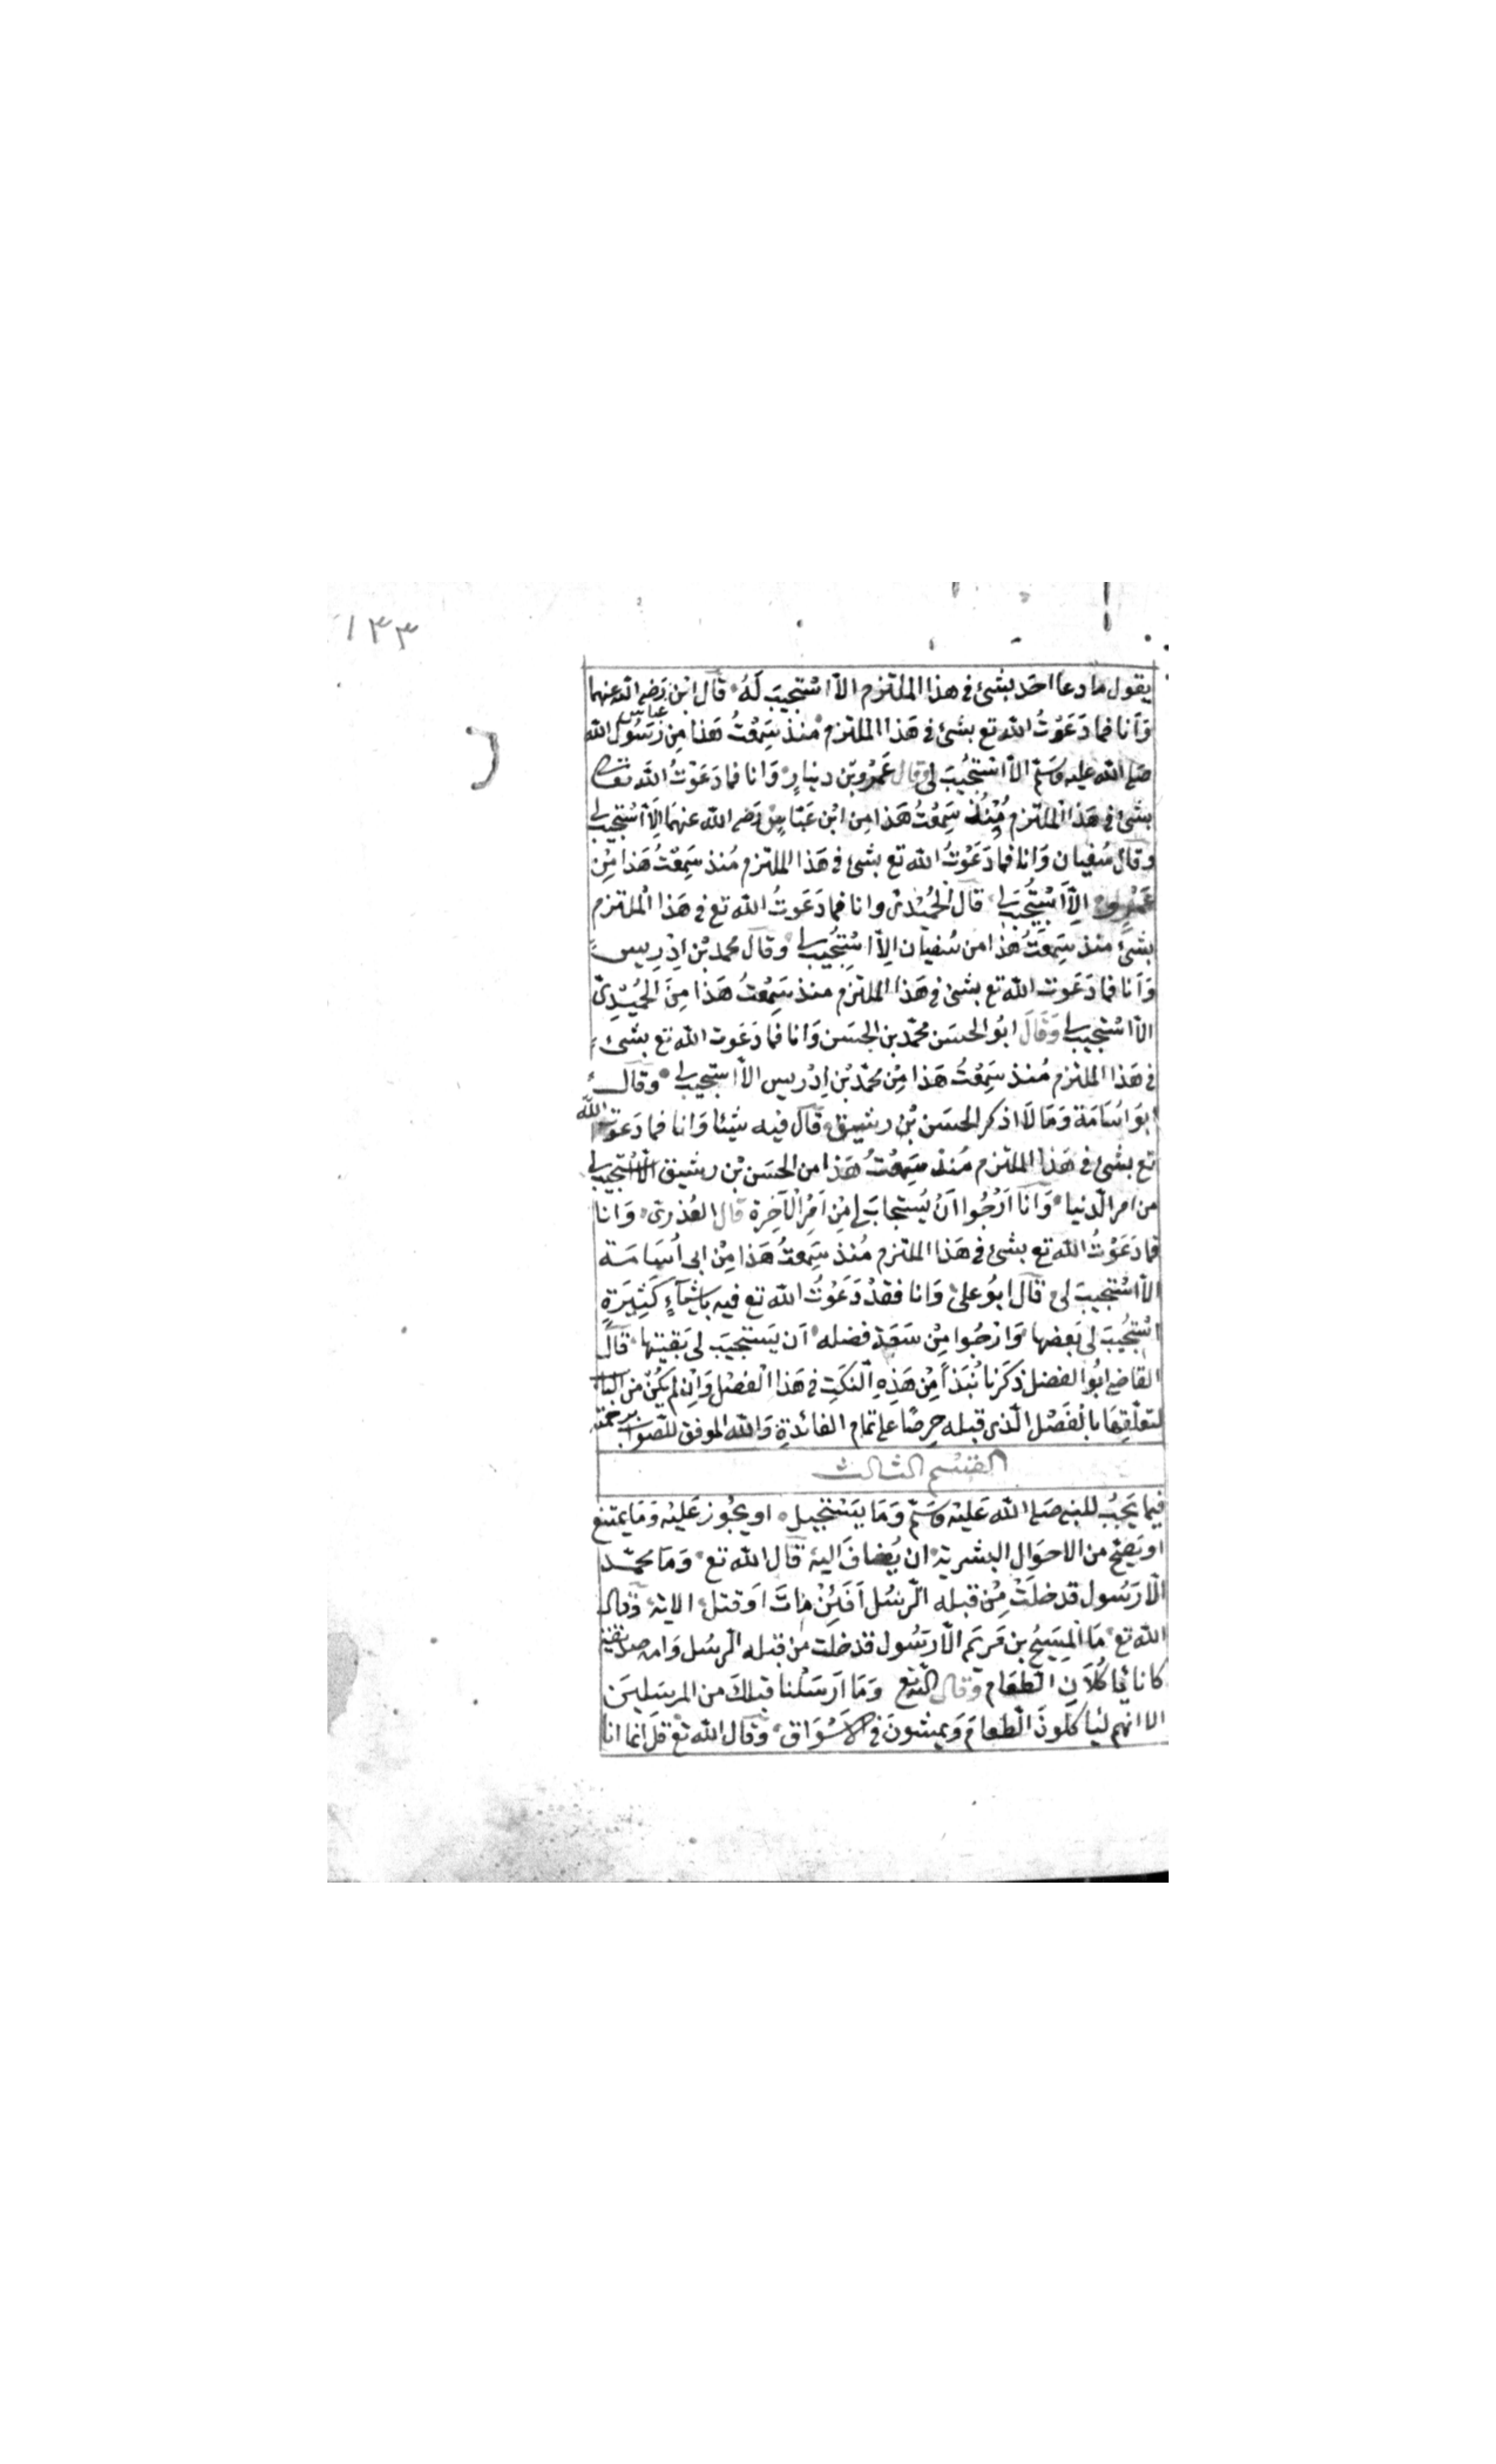 ١٣٣
يقول ما دعا احَد بشئ فى هذا الملتزم الاّ اسْتجيبَ لَهُ قال ابن عباس رَضى الله عنهما
وَأنا فما دَعَوْتُ الله تع بشئ فى هَذا الملتزم منذ سَمِعْتُ هَذا مِنْ رَسُول الله
صَلى الله عليه وَسَلم الاّ اسْتجُيبَ لى وقال عَمْرُو بْن دينارٍ وَانا فما دَعَوْتُ الله تعالى
بشئ فى هَذا الملتزم مُنْذُ سَمِعْتُ هَذا مِن ابْن عَبّاسٍ رَضى الله عنهمَا الاّ اسْتُجيب لى
وقال سُفيان وَانا فما دَعَوْتُ الله تع بشئ فى هَذا الملتزم مُنذ سَمِعْتُ هَذا مِنْ
عَمْرٍو الاّ اسْتُجيبَ لى قال الحُمَيْدىّ وانا فما دَعَوتُ الله تع فى هَذا الْملتزم
بشئ منذ سَمِعتُ هٰذا من سُفيان الاّ اسْتُجيب لى وقال محمد بْن اِدْرِيسَ
وَأنا فما دَعَوت الله تع بشئ فى هَذا الملتزم منذ سَمِعْتُ هَذا مِنَ الحُمَيْدِىّ
الاّ اسْتجيب لى وَقَالَ ابُو الحسَن محمّد بن الحسَن وَانا فما دَعَوت الله تع بشئ
فى هَذا الملتزم مُنذ سَمِعْتُ هَذا مِنْ محمّد بْن اِدْريس الاّ استجيب لى وقال
ابوَ اسَامَة وَمَا لاَ اذكر الحسَن بْن رشيق قال فيه شيئا وَانا فما دَعَوت الله
تع بشئ فى هَذا الملتزم مُنذ سَمِعْتُ هَذا من الحسَن بْن رشيق الاّ اسْتُجيب لى
من امر الدّنيا وَأنا اَرْجُوا اَنْ يُستجابَ لى مِنْ اَمْرِ الْآخِرة قال العُذرىّ وَانا
فما دَعَوْتُ الله تع بشئ فى هَذا الملتزم مُنذ سَمِعتُ هَذا مِنْ ابى اُسَامَة
الاّ اسْتجيبَ لى قال ابُو عَلىّ وَانا فقدْ دَعَوْتُ الله تع فيه باشْياءٍ كَثِيرَةٍ
اسْتُجيُبَ لى بَعضها وَارْجُوا مِنْ سَعَة فضله اَن يَستجيَب لى بَقيتها قال
القاضى ابُو الفضل ذكَرنا نُبَذاً مِنْ هَذِهِ النّكَتِ فى هَذا الْفصْل وَاِنْ لم يَكُنْ من البَاب
لتعلّقِهَا بالْفَصْل الّذى قبله حِرصًا على تمام الفائدةِ وَالله الموفق للصّواب برحمته
القسْم الثالث
فيما يَجبُ للنبى صَلى الله عَليْه وَسَلّم وَمَا يَسْتحيل او يجُوز عَليْه وَمَا يمتنع
او يَصحّ من الاحوَال البشرية ان يُضافَ اليهْ قال الله تع وَمَا محمّد
الّا رَسُول قد خلَتْ مِنْ قبله الرّسُل اَفَئِنْ مَاتَ اَوْ قتل الاية وقال
الله تع مَا المسَيحُ بن مَريَم الّا رَسُول قد خلت من قبله الرّسُل وَامه صديقة
كانا يأ كُلاَنِ الطعَام وَقال الله تع وَمَا اَرسَلْنا قبلكَ من المرسَليَن
الا انهم ليأ كلُونَ الطعَامَ وَيمشونَ فى الْاَسْوَاق وَقال الله تع قل انما انا